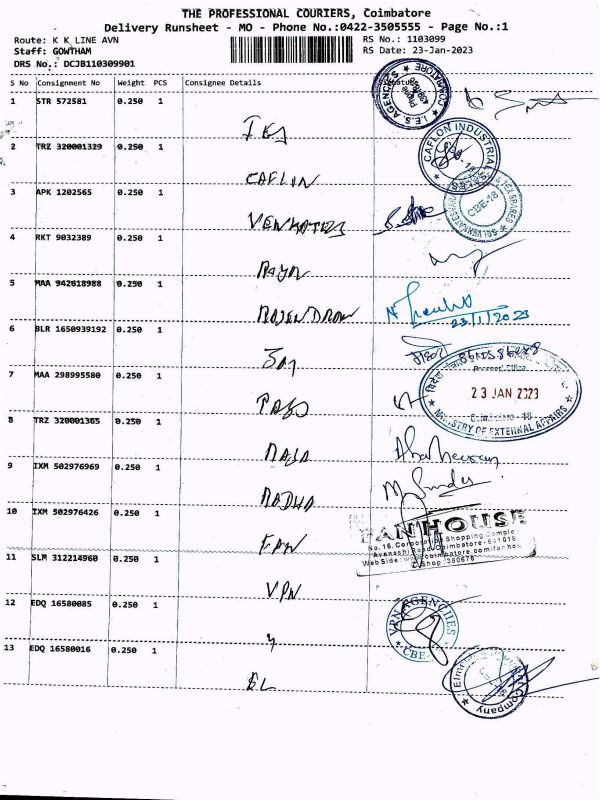 THE PROFESSIONAL COURIERS, Coimbatore
Delivery Runsheet - MO - Phone No.:0422-3505555 - Page No.:1
Route: K K LINE AVN
RS No.: 1103099
Staff: GOWTHAM
RS Date: 23-Jan-2023
DRS No.: DCJB110309901
S No Consignment No Weight PCS Consignee Details Signature
1 STR 572581 0.250 1
I.E.S AGENCIES COIMBATORE Phone
IES
2 TRZ 320001329 0.250 1
CAFLON INDUSTRIAL
CAFLON
3 APK 1202565 0.250 1
CBE-18
VENKATES
4 RKT 9032389 0.250 1
5 MAA 942618988 0.250 1
23/1/2023
RAJENDRAN
6 BLR 1650939192 0.250 1
JAY
7 MAA 298995580 0.250 1
23 JAN 2023
MINISTRY OF EXTERNAL AFFAIRS
8 TRZ 320001365 0.250 1
RAJA
9 IXM 502976969 0.250 1
M Sundar
RADHA
10 IXM 502976426 0.250 1
FAN HOUSE
No.16, Corporation Shopping Comple
Avanashi Road, Coimbatore-641018
Web Side: www.coimbatore.com/fanhou
C.Shop: 380676
FAN
11 SLM 312214960 0.250 1
VPN
12 EDQ 16580085 0.250 1
VPN AGENCIES
CBE-
13 EDQ 16580016 0.250 1
Company
EL